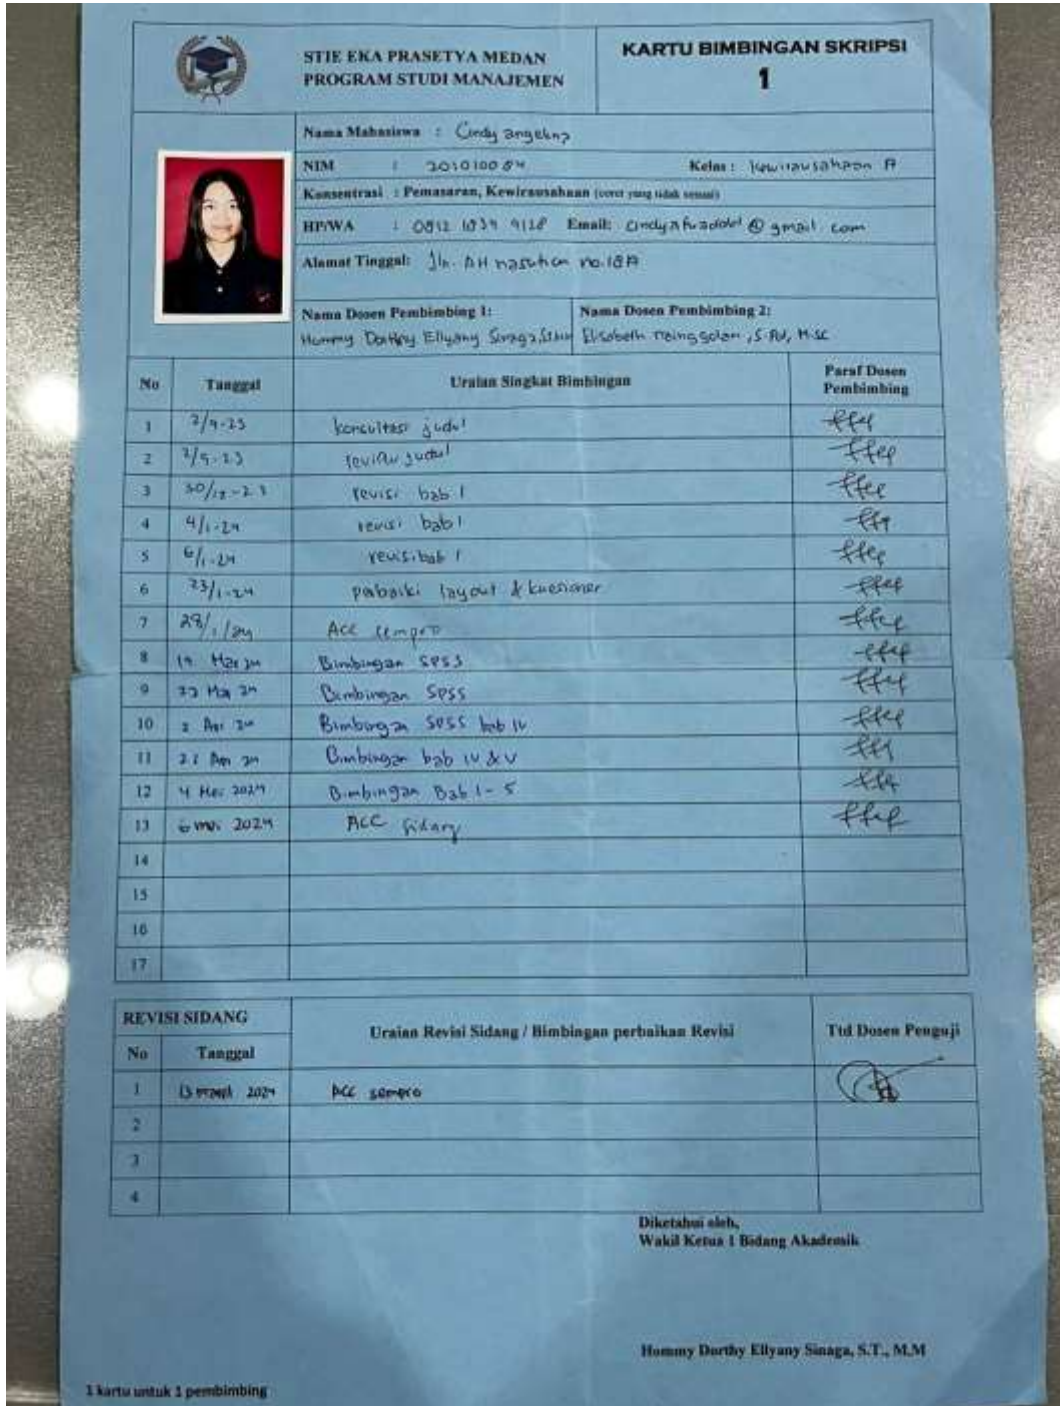 STIE EKA PRASETYA MEDAN
PROGRAM STUDI MANAJEMEN
KARTU BIMBINGAN SKRIPSI
1
Nama Mahasiswa : Cindy angelina
NIM : 201010084 Kelas : Kewirausahaan A
Konsentrasi : Pemasaran, Kewirausahaan (coret yang tidak sesuai)
HP/WA : Email: @ gmail com
Alamat Tinggal: Jln. AH nasution no.18A
Nama Dosen Pembimbing 1: Nama Dosen Pembimbing 2:
Hommy Dorthy Ellyany Sinaga, Elisabeth nainggolan, S.Pd, M.Sc
No Tanggal Uraian Singkat Bimbingan Paraf Dosen Pembimbing
1 2/9-23 konsultasi judul
2 judul
3 30/12-23 revisi bab 1
4 4/1-24 revisi bab 1
5 6/1-24 revisi bab 1
6 23/1-24 layout & kuesioner
7 28/1/24 ACC sempro
8 19 Mar 24 Bimbingan SPSS
9 Mar 24 Bimbingan SPSS
10 Apr 24 Bimbingan SPSS bab IV
11 Apr 24 Bimbingan bab IV & V
12 4 Mei 2024 Bimbingan Bab 1-5
13 6 mei 2024 ACC sidang
14
15
16
17
REVISI SIDANG
No Tanggal Uraian Revisi Sidang / Bimbingan perbaikan Revisi Ttd Dosen Penguji
1 13 maret 2024 ACC sempro
2
3
4
Diketahui oleh,
Wakil Ketua 1 Bidang Akademik
Hommy Dorthy Ellyany Sinaga, S.T., M.M
1 kartu untuk 1 pembimbing